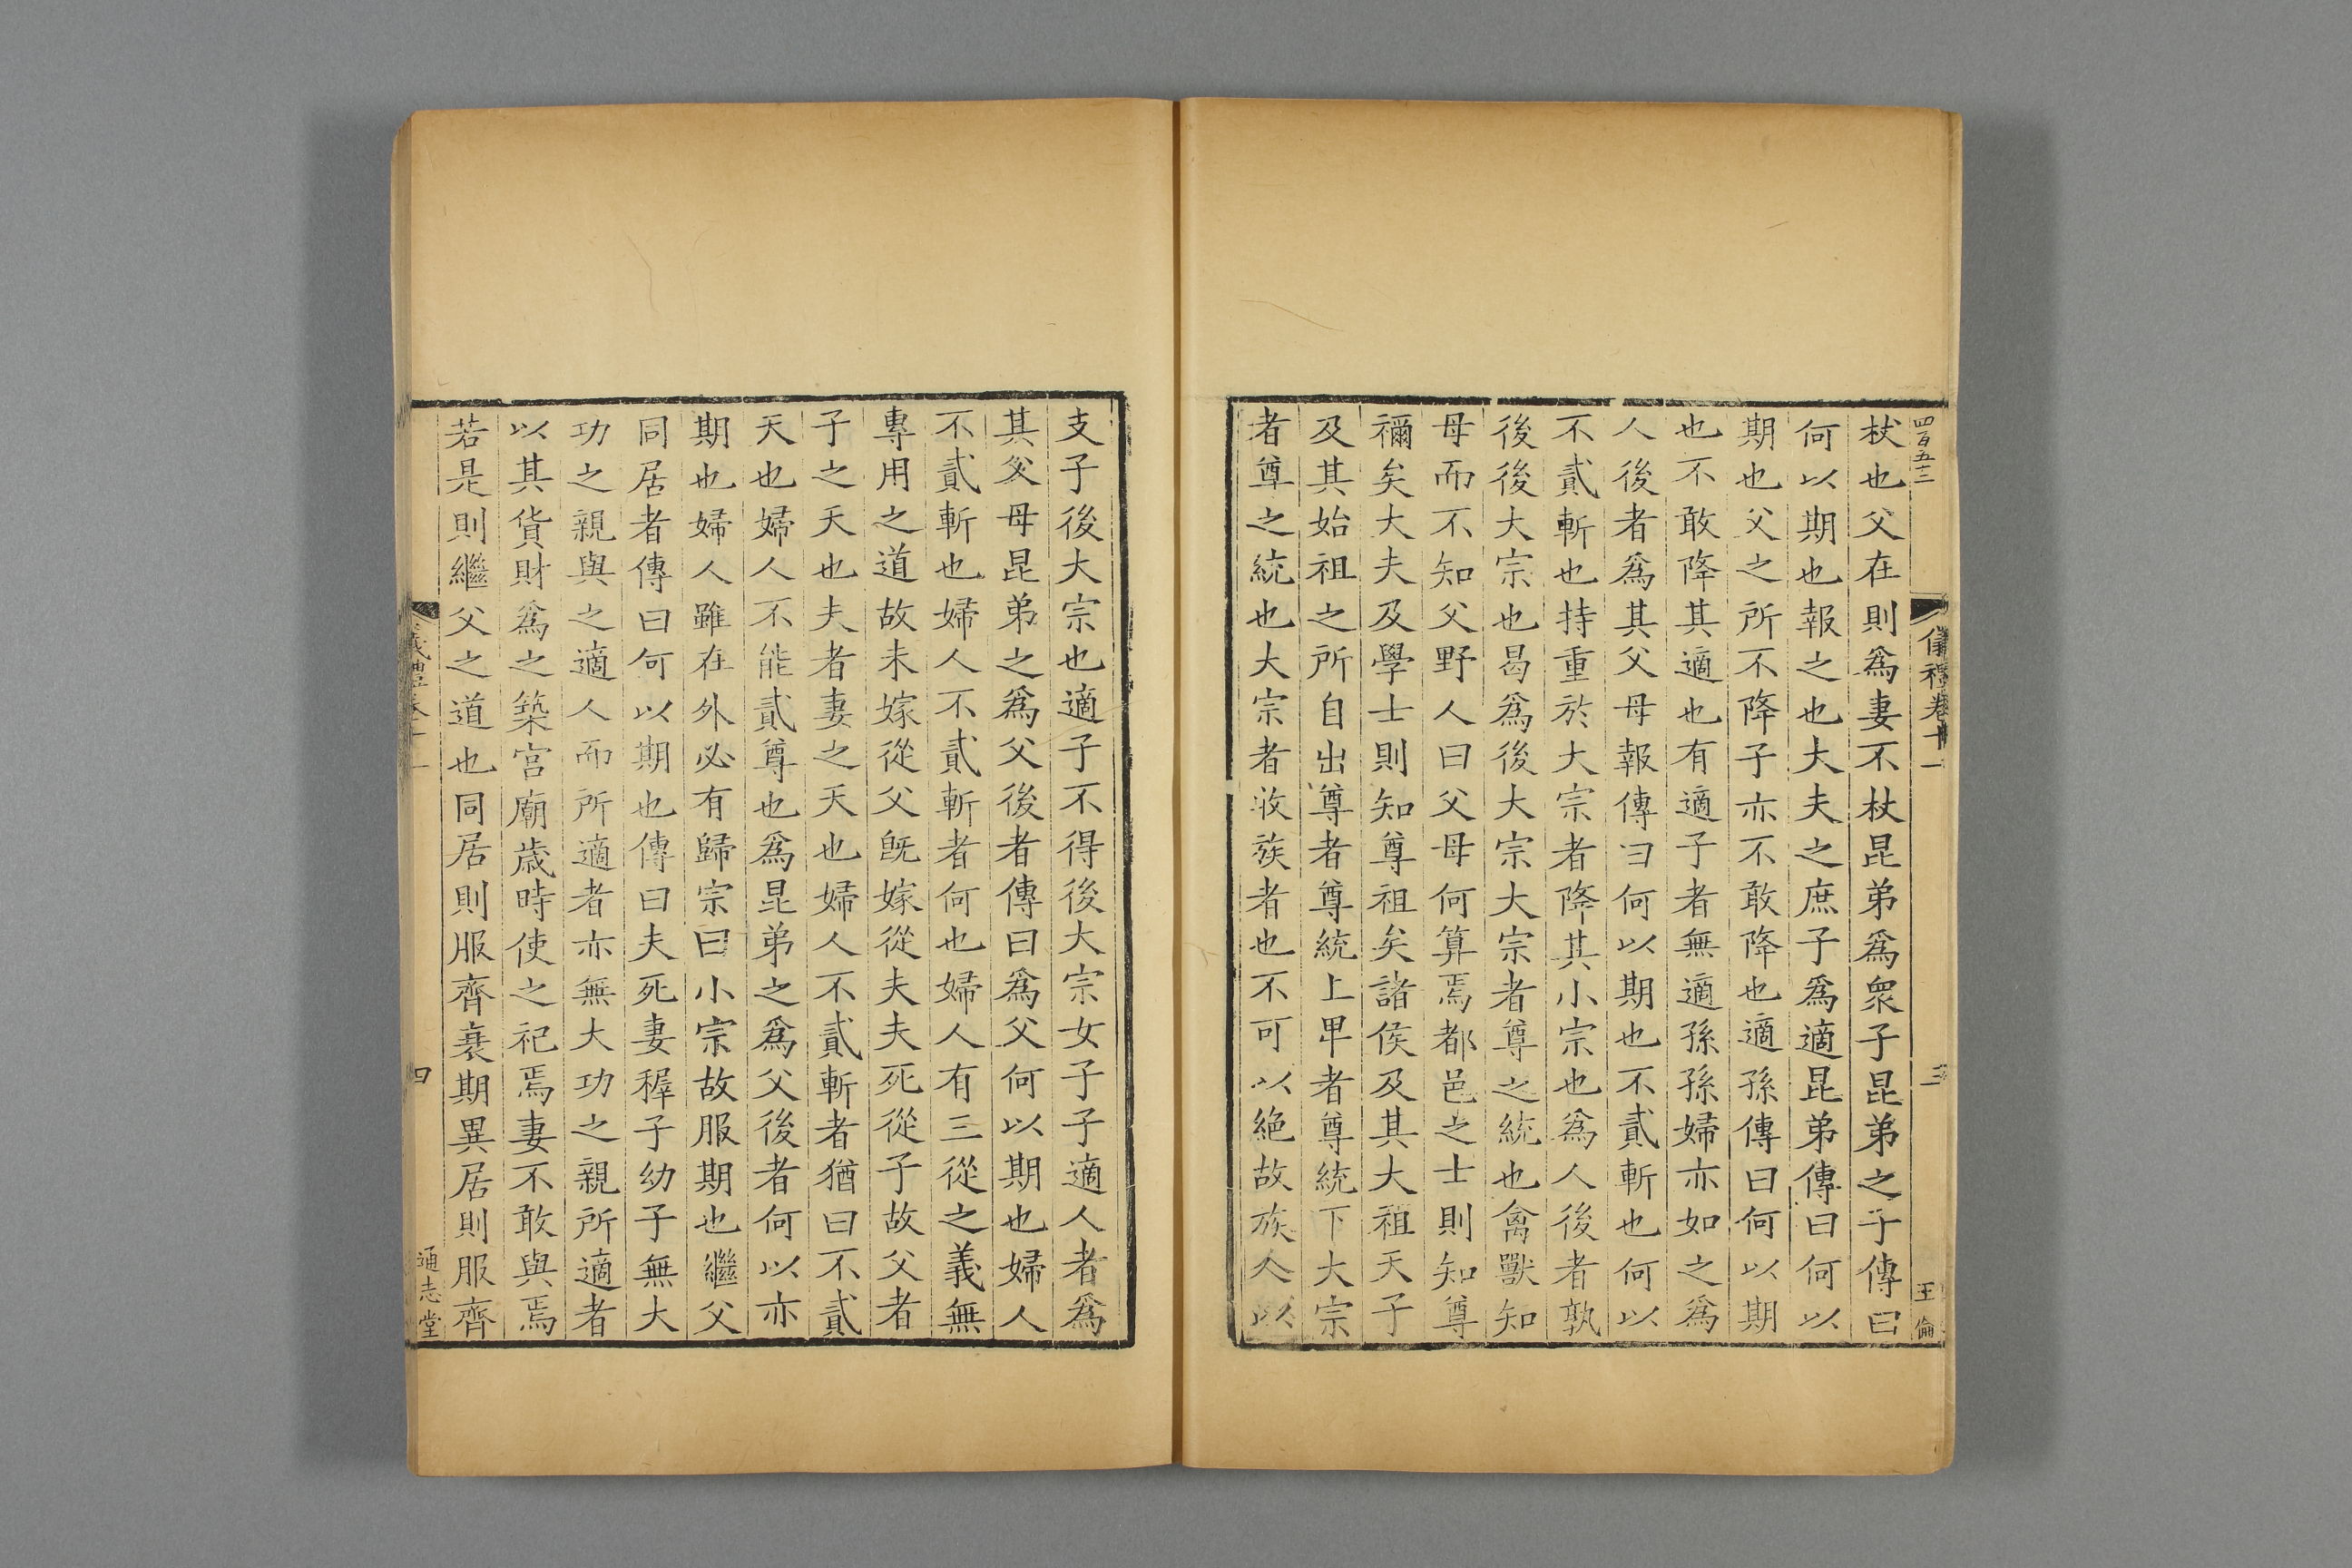 四百五十三
儀禮卷十一
三
王倫
杖也父在則爲妻不杖昆弟爲衆子昆弟之子傳曰
何以期也報之也大夫之庶子爲適昆弟傳曰何以
期也父之所不降子亦不敢降也適孫傳曰何以期
也不敢降其適也有適子者無適孫孫婦亦如之爲
人後者爲其父母報傳曰何以期也不貳斬也何以
不貳斬也持重於大宗者降其小宗也爲人後者孰
後後大宗也曷爲後大宗大宗者尊之統也禽獸知
母而不知父野人曰父母何算焉都邑之士則知尊
禰矣大夫及學士則知尊祖矣諸侯及其大祖天子
及其始祖之所自出尊者尊統上卑者尊統下大宗
者尊之統也大宗者收族者也不可以絶故族人以
支子後大宗也適子不得後大宗女子子適人者爲
其父母昆弟之爲父後者傳曰爲父何以期也婦人
不貳斬也婦人不貳斬者何也婦人有三從之義無
專用之道故未嫁從父旣嫁從夫夫死從子故父者
子之天也夫者妻之天也婦人不貳斬者猶曰不貳
天也婦人不能貳尊也爲昆弟之爲父後者何以亦
期也婦人雖在外必有歸宗曰小宗故服期也繼父
同居者傳曰何以期也傳曰夫死妻穉子幼子無大
功之親與之適人而所適者亦無大功之親所適者
以其貨財爲之築宮廟歲時使之祀焉妻不敢與焉
若是則繼父之道也同居則服齊衰期異居則服齊
四
通志堂